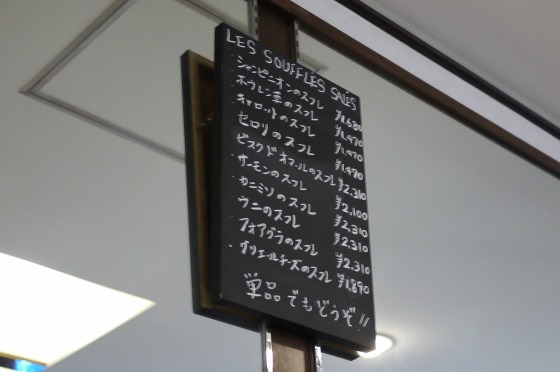 LES SOUFFLÉS SALÉS
・シャンピニオンのスフレ ¥1,680
・ホウレン草のスフレ ¥1,470
・キャロットのスフレ ¥1,470
・セロリのスフレ ¥1,470
・ビスクドオマールのスフレ ¥2,310
・サーモンのスフレ ¥2,100
・カニミソのスフレ ¥2,310
・ウニのスフレ ¥2,310
・フォアグラのスフレ ¥2,310
・グリエールチーズのスフレ ¥1,890
単品でもどうぞ!!